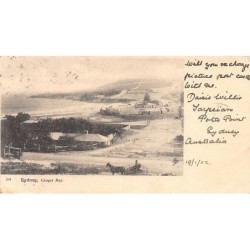 Will you exchange
picture post cards
with me.
Daisie Willis
Tarpeian
Potts Point
Sydney
Australia
19/1/02.
Sydney, Cooger Bay.